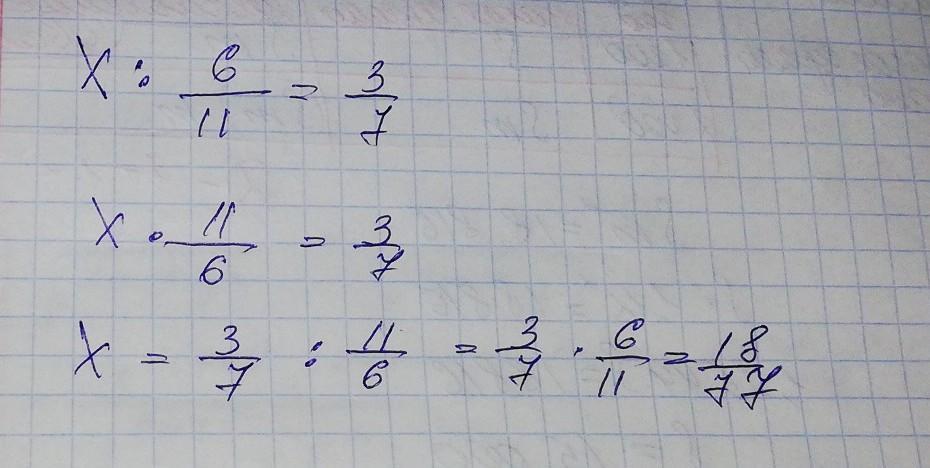 X : 6/11 = 3/7
X · 11/6 = 3/7
X = 3/7 : 11/6 = 3/7 · 6/11 = 18/77